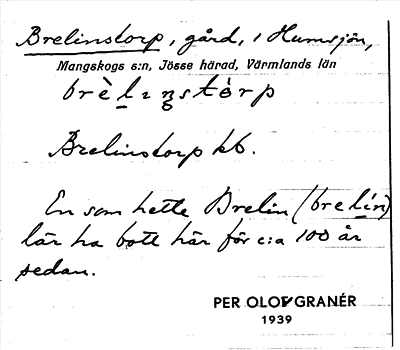 Brelinstorp, gård, i Humsjön,
Mangskogs s:n, Jösse härad, Värmlands län
brèlınstòrp
Brelinstorp kb.
En som hette Brelin (brelín)
lär ha bott här för c:a 100 år
sedan.
PER OLOV GRANÉR
1939